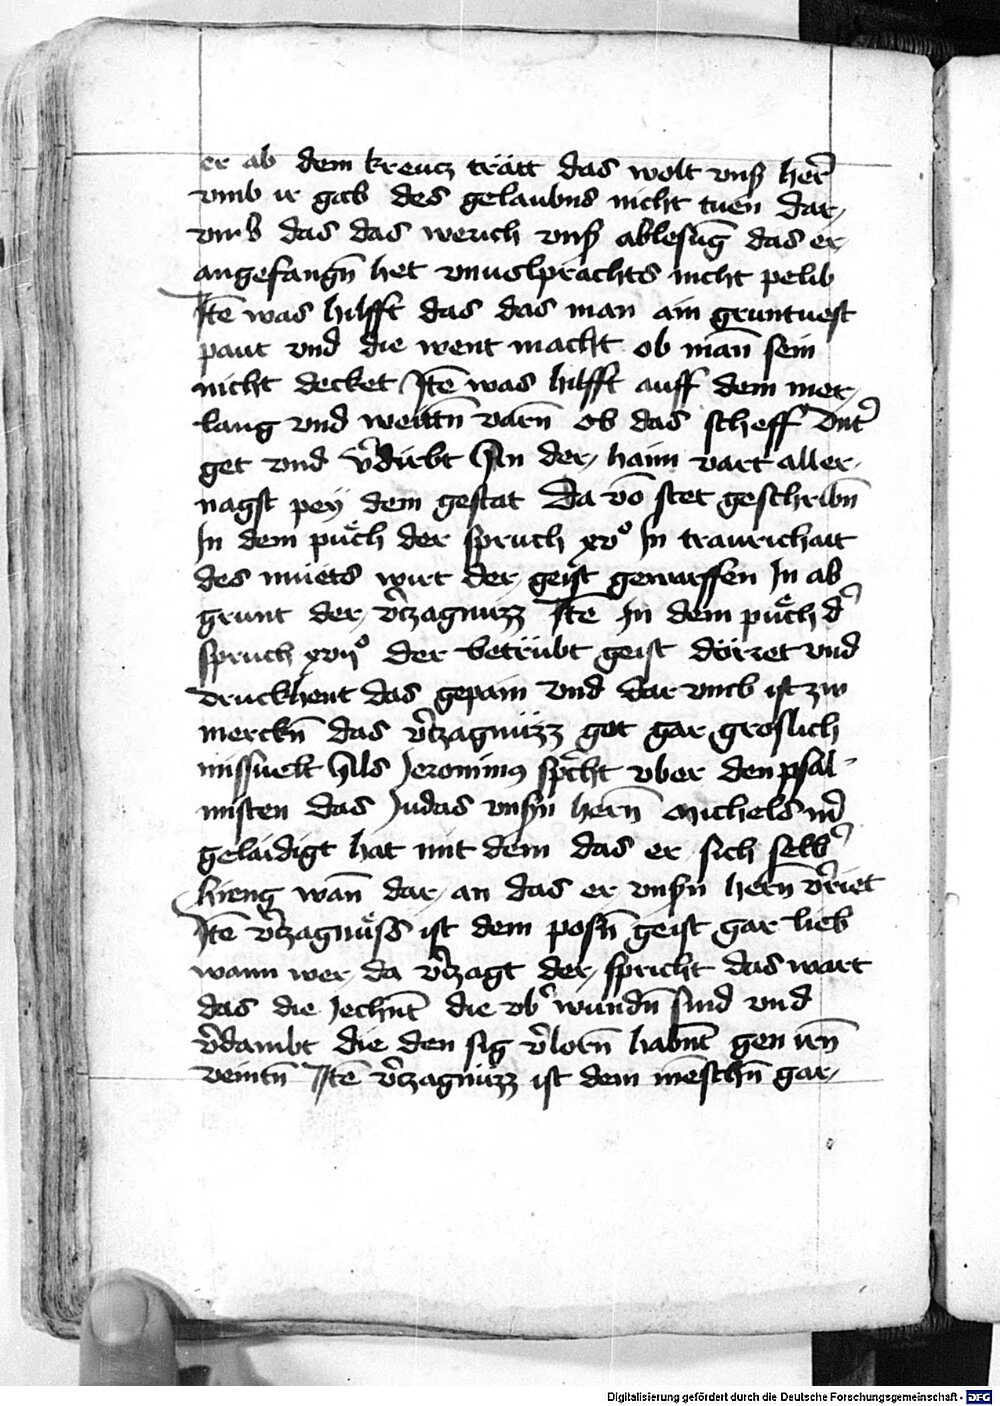 er ab dem kreucz trätt das wolt vnß her̄
vmb ir gab des gelaubns nicht tuen dar
vmb das das werich vnß ablesūg das er
angefangn̄ het vnuolprachts nicht pelib
Itē was hilfft das das man ain gruntuest
paut vnd die went macht ob man̄ sein
nicht decket Itē was hilfft auff dem mer
lang vnd weittn̄ varn̄ ob das scheff vnt͛
get vnd v͛dirbt An der haim vart aller
nagst peÿ dem gestat Da vō stet geschribn̄
In dem pu̎ch der spruch xvº In traurichait
des muets wirt der geist geworffen In ab
grunt der v͛czagnuzz Itē In dem pu̎ch d͛
spruch xvijº der betrübt geist dörret vnd
druckhent das gepain vnd dar vmb ist zw
merckn̄ das v͛czagnüzz got gar groslich
missuelt Als Jeronimus sp͛cht vber den psal
misten das Judas vnßn̄ hern̄ michels m͛
gelaidigt hat mit dem das er sich selb͛
hieng wan̄ dar an das er vnßn̄ hern̄ v͛riet
Itē v͛czagnu̎ss ist dem posn̄ geist gar lieb
wann wer da v͛czagt der spricht das wart
das die Jechnt̄ die vb͛wundn̄ sind vnd
v͛dambt die den sig v͛lorn̄ habnt̄ gen irn̄
veintn̄ Itē v͛czagnüzz ist dem mēschn̄ gar
Digitalisierung gefördert durch die Deutsche Forschungsgemeinschaft - DFG